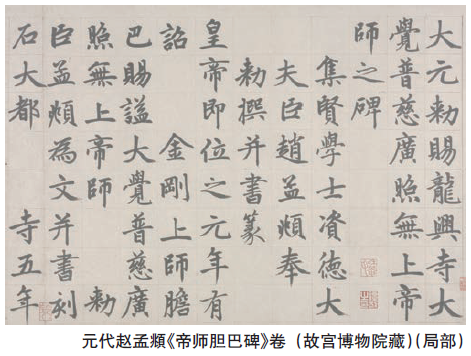 大元勅賜龍興寺大
覺普慈廣照無上帝
師之碑
集賢學士資德大
夫臣趙孟頫奉
勅撰并書篆
皇帝即位之元年有
詔 金剛上師膽
巴賜謚大覺普慈廣
照無上帝師 勅
臣孟頫為文并書刻
石大都 寺五年
元代赵孟頫《帝师胆巴碑》卷（故宫博物院藏）（局部）